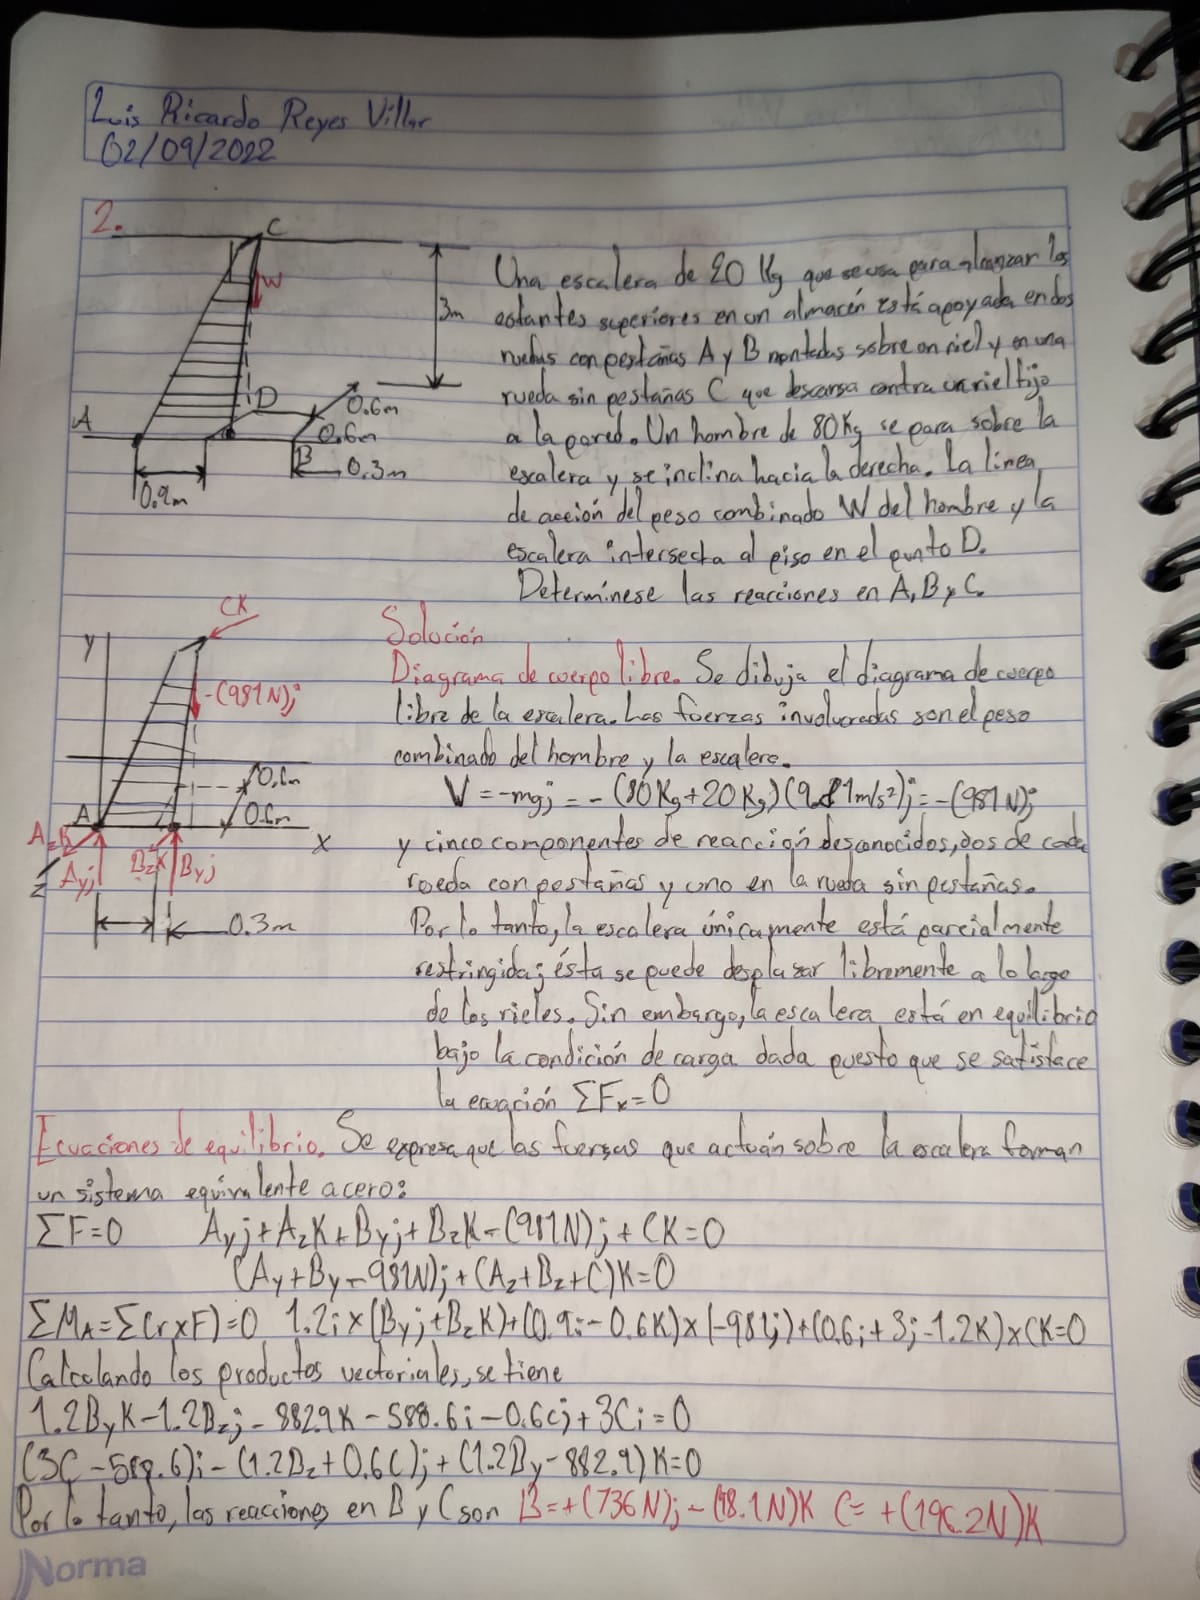 Luis Ricardo Reyes Villar
02/09/2022
2.
C
W
3m
D
0.6m
A
0.6m
B
0.3m
0.9m
Una escalera de 20 Kg que se usa para alcanzar los
estantes superiores en un almacén está apoyada en dos
ruedas con pestañas A y B montadas sobre un riel y en una
rueda sin pestañas C que descansa contra un riel fijo
a la pared. Un hombre de 80Kg se para sobre la
escalera y se inclina hacia la derecha. La linea
de acción del peso combinado W del hombre y la
escalera intersecta al piso en el punto D.
Determínese las reacciones en A, B y C.
CK
Y
-(981N)j
0.6m
A
0.6m
X
AzK
BzK
Byj
Ayj
Z
0.3m
Solución
Diagrama de cuerpo libre. Se dibuja el diagrama de cuerpo
libre de la escalera. Las fuerzas involucradas son el peso
combinado del hombre y la escalera.
V = -mgj = -(80Kg+20Kg)(9.81m/s²)j = -(981N)j
y cinco componentes de reacción desconocidos, dos de cada
rueda con pestañas y uno en la rueda sin pestañas.
Por lo tanto, la escalera únicamente está parcialmente
restringida; ésta se puede desplazar libremente a lo largo
de los rieles. Sin embargo, la escalera está en equilibrio
bajo la condición de carga dada puesto que se satisface
la ecuación ΣFx=0
Ecuaciones de equilibrio. Se expresa que las fuerzas que actuán sobre la escalera forman
un sistema equivalente a cero:
ΣF=0 Ayj+AzK+Byj+BzK-(981N)j+CK=0
(Ay+By-981N)j+(Az+Bz+C)K=0
ΣMA=Σ(rxF)=0 1.2i x(Byj+BzK)+(0.9i-0.6K)x(-981j)+(0.6i+3j-1.2K)xCK=0
Calculando los productos vectoriales, se tiene
1.2ByK-1.2Bzj-882.9K-588.6i-0.6Cj+3Ci=0
(3C-588.6)i-(1.2Bz+0.6C)j+(1.2By-882.9)K=0
Por lo tanto, las reacciones en B y C son B=+(736N)j-(98.1N)K C=+(196.2N)K
Norma